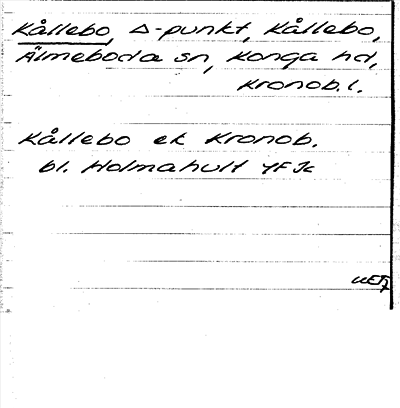 Kållebo, Δ-punkt, Kållebo,
Älmeboda sn, Konga hd,
Kronob. l.
Kållebo ek Kronob.
bl. Holmahult